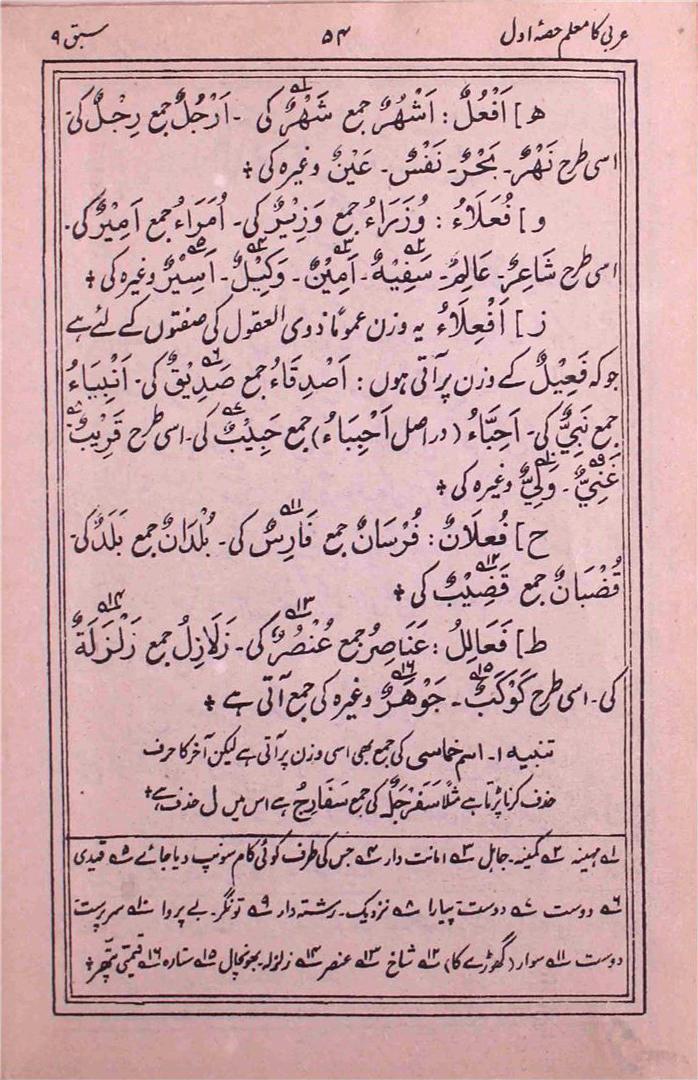 عربی کا معلم حصۂ اول ۵۴ سبق ۹
ھ] اَفْعُلٌ : اَشْهُرٌ جمع شَهْرٌ؁۱ کی ۔ اَرْجُلٌ جمع رِجْلٌ کی۔
اسی طرح نَهْرٌ۔ بَحْرٌ۔ نَفْسٌ۔ عَیْنٌ وغیرہ کی ؞
و] فُعَلَاءُ : وُزَرَاءُ جمع وَزِیْرٌ کی۔ اُمَرَاءُ جمع اَمِیْرٌ کی۔
اسی طرح شَاعِرٌ۔ عَالِمٌ۔ سَفِیْهٌ؁۲۔ اَمِیْنٌ؁۳۔ وَکِیْلٌ؁۴۔ اَسِیْرٌ؁۵ وغیرہ کی ؞
ز] اَفْعِلَاءُ یہ وزن عموماً ذوی العقول کی صفتوں کے لئے ہے
جو کہ فَعِیْلٌ کے وزن پر آتی ہوں : اَصْدِقَاءُ جمع صَدِیْقٌ؁۶ کی۔ اَنْبِیَاءُ
جمع نَبِیٌّ کی۔ اَحِبَّاءُ (دراصل اَحْبِبَاءُ) جمع حَبِیْبٌ؁۷ کی۔ اسی طرح قَرِیْبٌ؁۸
غَنِیٌّ؁۹۔ وَلِیٌّ؁۱۰ وغیرہ کی ؞
ح] فُعلَانٌ : فُرْسَانٌ جمع فَارِسٌ؁۱۱ کی۔ بُلْدَانٌ جمع بَلَدٌ کی۔
قُضْبَانٌ جمع قَضِیْبٌ؁۱۲ کی ؞
ط] فَعَالِلُ : عَنَاصِرُ جمع عُنْصُرٌ؁۱۳ کی۔ زَلَازِلُ جمع زَلْزَلَةٌ؁۱۴
کی۔ اسی طرح کَوْکَبٌ؁۱۵۔ جَوْهَرٌ؁۱۶ وغیرہ کی جمع آتی ہے ؞
تنبیہ ۱۔ اسم خماسی کی جمع بھی اسی وزن پر آتی ہے لیکن آخر کا حرف
حذف کرنا پڑتا ہے مثلاً سَفَرْجَلٌ کی جمع سَفَارِجُ ہے اس میں ل حذف ہے ؞
؁۱ مہینہ ؁۲ کمینہ۔ جاہل ؁۳ امانت دار ؁۴ جس کی طرف کوئی کام سونپ دیا جائے ؁۵ قیدی
؁۶ دوست ؁۷ دوست۔ پیارا ؁۸ نزدیک۔ رشتہ دار ؁۹ تونگر۔ بے پروا ؁۱۰ سرپرست
دوست ؁۱۱ سوار (گھوڑے کا) ؁۱۲ شاخ ؁۱۳ عنصر ؁۱۴ زلزلہ۔ بھونچال ؁۱۵ ستارہ ؁۱۶ قیمتی پتّھر ؞